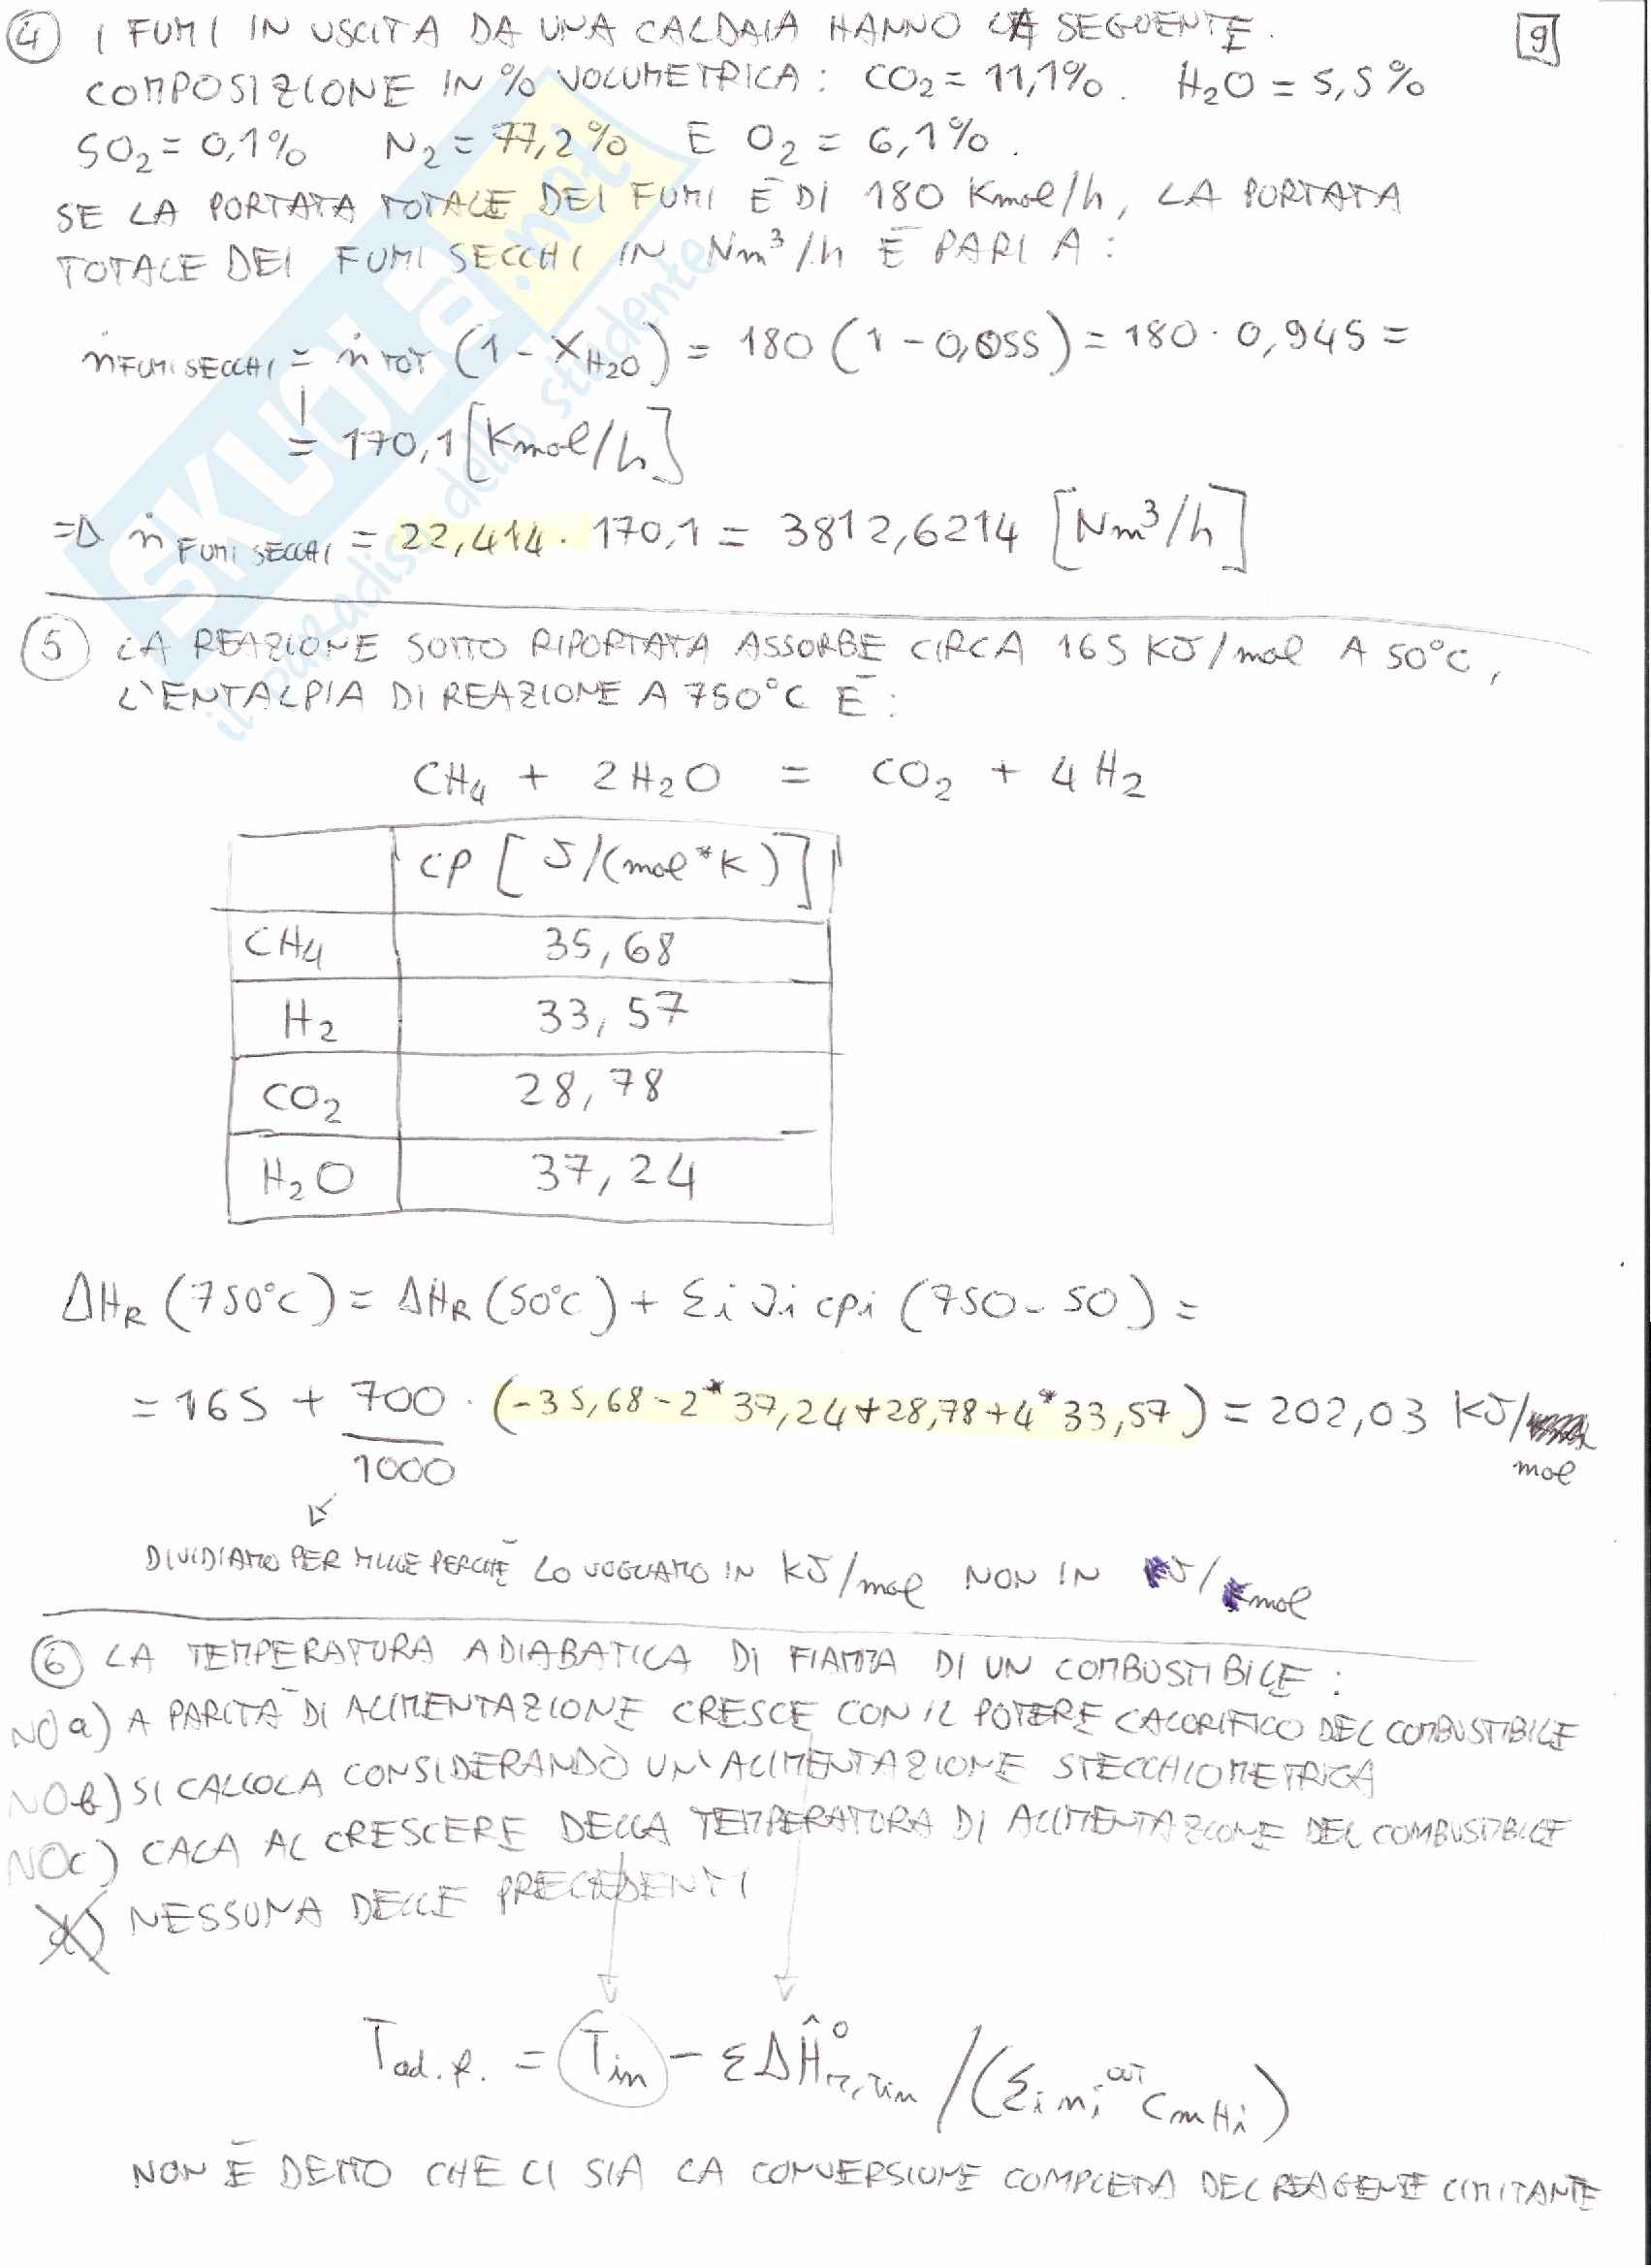 ④ I FUMI IN USCITA DA UNA CALDAIA HANNO LA SEGUENTE. 9
COMPOSIZIONE IN % VOLUMETRICA: CO₂ = 11,1%. H₂O = 5,5%
SO₂ = 0,1% N₂ = 77,2% E O₂ = 6,1%.
SE LA PORTATA TOTALE DEI FUMI È DI 180 Kmol/h, LA PORTATA
TOTALE DEI FUMI SECCHI IN Nm³/h È PARI A:
ṅ FUMI SECCHI = ṅ TOT (1 - X_H₂O) = 180 (1 - 0,055) = 180 · 0,945 =
= 170,1 [Kmol/h]
=> ṅ FUMI SECCHI = 22,414 · 170,1 = 3812,6214 [Nm³/h]
⑤ LA REAZIONE SOTTO RIPORTATA ASSORBE CIRCA 165 KJ/mol A 50°C,
L'ENTALPIA DI REAZIONE A 750°C È:
CH₄ + 2H₂O = CO₂ + 4H₂
CP [J/(mol*K)]
CH₄ 35,68
H₂ 33,57
CO₂ 28,78
H₂O 37,24
ΔH_R (750°C) = ΔH_R (50°C) + Σi νi cpi (750 - 50) =
= 165 + 700/1000 · (-35,68 - 2*37,24 + 28,78 + 4*33,57) = 202,03 KJ/
mol
DIVIDIAMO PER MILLE PERCHÈ LO VOGLIAMO IN KJ/mol NON IN J/mol
⑥ LA TEMPERATURA ADIABATICA DI FIAMMA DI UN COMBUSTIBILE:
NO a) A PARITÀ DI ALIMENTAZIONE CRESCE CON IL POTERE CALORIFICO DEL COMBUSTIBILE
NO b) SI CALCOLA CONSIDERANDO UN'ALIMENTAZIONE STECCHIOMETRICA
NO c) CALA AL CRESCERE DELLA TEMPERATURA DI ALIMENTAZIONE DEL COMBUSTIBILE
d) NESSUNA DELLE PRECEDENTI
T ad.f. = Tin - εΔĤ°r,Tin / (Σi ni^OUT CmHi)
NON È DETTO CHE CI SIA LA CONVERSIONE COMPLETA DEL REAGENTE LIMITANTE
SKUOLA.net
il paradiso dello studente